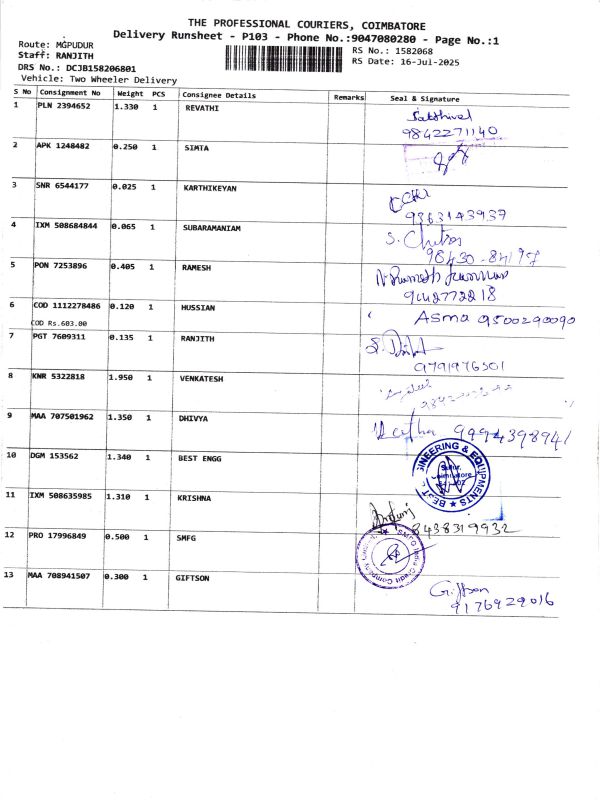 THE PROFESSIONAL COURIERS, COIMBATORE
Delivery Runsheet - P103 - Phone No.:9047080280 - Page No.:1
Route: MGPUDUR
RS No.: 1582068
Staff: RANJITH
RS Date: 16-Jul-2025
DRS No.: DCJB158206801
Vehicle: Two Wheeler Delivery
S No Consignment No Weight PCS Consignee Details Remarks Seal & Signature
1 PLN 2394652 1.330 1 REVATHI Sakthivel
9842271140
2 APK 1248482 0.250 1 SIMTA
3 SNR 6544177 0.025 1 KARTHIKEYAN
9363143937
4 IXM 508684844 0.065 1 SUBARAMANIAM S. Chitra
98430-84197
5 PON 7253896 0.405 1 RAMESH N. Ramesh Kumar
9442772218
6 COD 1112278486 0.120 1 HUSSIAN Asma 9500290090
COD Rs.603.00
7 PGT 7609311 0.135 1 RANJITH
9791976301
8 KNR 5322818 1.950 1 VENKATESH
9 MAA 707501962 1.350 1 DHIVYA 9994398941
10 DGM 153562 1.340 1 BEST ENGG
BEST ENGINEERING & EQUIPMENTS
11 IXM 508635985 1.310 1 KRISHNA
8438319932
12 PRO 17996849 0.500 1 SMFG
SMFG India Credit Company Limited
13 MAA 708941507 0.300 1 GIFTSON Giftson
9176929016